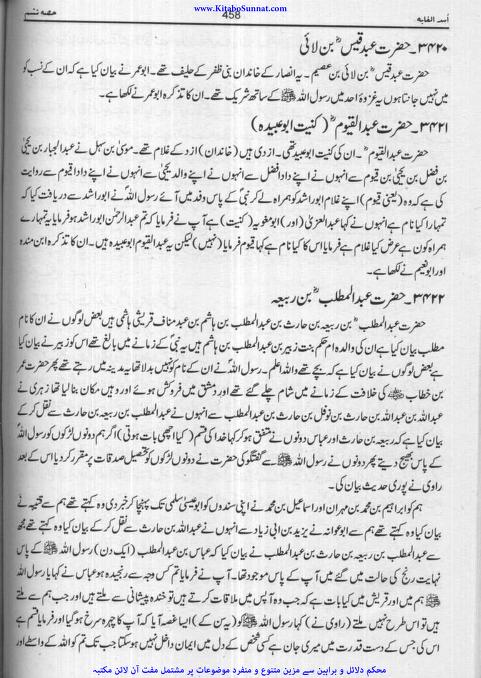 www.KitaboSunnat.com
اُسد الغابہ
458
حصہ ششم
۳۴۲۰۔ حضرت عبدقیسؓ بن لائی
حضرت عبدقیسؓ بن لائی بن عصیم۔ یہ انصار کے خاندان بنی ظفر کے حلیف تھے۔ ابوعمر نے بیان کیا ہے کہ ان کے نسب کو
میں نہیں جانتا ہوں یہ غزوۂ احد میں رسول اللہ ﷺ کے ساتھ شریک تھے۔ ان کا تذکرہ ابوعمر نے لکھا ہے۔
۳۴۲۱۔ حضرت عبدالقیومؓ (کنیت ابوعبیدہ)
حضرت عبدالقیومؓ۔ ان کی کنیت ابوعبیدہ تھی۔ ازدی ہیں (خاندان) ازد کے غلام تھے۔ موسیٰ بن سہل نے عبدالجبار بن یحییٰ
بن فضل بن یحییٰ بن قیوم سے انہوں نے اپنے دادا فضل سے انہوں نے اپنے والد یحییٰ سے انہوں نے اپنے دادا قیوم سے روایت
کی ہے کہ وہ (یعنی قیوم) اپنے غلام ابوراشد کو ہمراہ لے کر نبی کے پاس وفد میں آئے رسول اللہ نے ابوراشد سے دریافت کیا کہ
تمہارا کیا نام ہے انہوں نے کہا عبدالعزیٰ (اور) ابومغویہ (کنیت) ہے آپ نے فرمایا کہ تم عبدالرحمن ابوراشد ہو فرمایا یہ تمہارے
ہمراہ کون ہے عرض کیا غلام ہے فرمایا اس کا کیا نام ہے کہا قیوم فرمایا (نہیں) لیکن یہ عبدالقیوم ابوعبیدہ ہیں۔ ان کا تذکرہ ابن مندہ
اور ابونعیم نے لکھا ہے۔
۳۴۲۲۔ حضرت عبدالمطلبؓ بن ربیعہ
حضرت عبدالمطلبؓ بن ربیعہ بن حارث بن عبدالمطلب بن ہاشم بن عبد مناف قریشی ہاشمی ہیں بعض لوگوں نے ان کا نام
مطلب بیان کیا ہے ان کی والدہ ام حکم بنت زبیر بن عبدالمطلب بن ہاشم ہیں یہ نبی کے زمانے میں بالغ تھے اس کو زبیر نے بیان کیا
ہے بعض لوگوں نے بیان کیا ہے کہ بچے تھے واللہ اعلم۔ رسول اللہ نے ان کے نام کو نہیں بدلا تھا یہ مدینہ میں رہتے تھے پھر حضرت عمر
بن خطاب ﷺ کی خلافت کے زمانے میں شام چلے گئے تھے اور دمشق میں فروکش ہوئے اور وہیں مکان بنا لیا تھا زہری نے
عبداللہ بن عبداللہ بن حارث بن نوفل بن حارث بن عبدالمطلب سے انہوں نے عبدالمطلب بن ربیعہ بن حارث سے نقل کر کے
بیان کیا ہے کہ ربیعہ بن حارث اور عباس دونوں نے متفق ہو کر کہا خدا کی قسم (کیا اچھی بات ہوتی) اگر ہم دونوں لڑکوں کو رسول اللہ
کے پاس بھیج دیتے پھر دونوں نے رسول اللہ ﷺ سے گفتگو کی حضرت نے دونوں لڑکوں کو تحصیل صدقات پر مقرر کر دیا اس کے بعد
راوی نے پوری حدیث بیان کی۔
ہم کو ابراہیم بن محمد بن مہران اور اسماعیل بن محمد نے اپنی سندوں کو ابوعیسیٰ سلمی تک پہنچا کر خبر دی وہ کہتے تھے ہم سے قتیبہ نے
بیان کیا وہ کہتے تھے ہم سے ابوعوانہ نے یزید بن ابی زیاد سے انہوں نے عبداللہ بن حارث سے نقل کر کے بیان کیا وہ کہتے تھے مجھ
سے عبدالمطلب بن ربیعہ بن حارث بن عبدالمطلب نے بیان کیا کہ عباس بن عبدالمطلب (ایک دن) رسول اللہ ﷺ کے پاس
نہایت رنج کی حالت میں گئے میں آپ کے پاس موجود تھا۔ آپ نے فرمایا تم کس وجہ سے رنجیدہ ہو عباس نے کہا یا رسول اللہ
ﷺ ہم میں اور قریش میں کیا بات ہے کہ جب وہ آپس میں ملاقات کرتے ہیں تو خندہ پیشانی سے ملتے ہیں اور جب ہم سے ملتے
ہیں تو اس طرح نہیں ملتے (راوی نے) کہا رسول اللہ ﷺ کو (یہ سن کے) ایسا غصہ آیا کہ آپ کا چہرہ سرخ ہو گیا اور فرمایا قسم ہے
اس کی جس کے دست قدرت میں میری جان ہے کسی شخص کے دل میں ایمان داخل نہیں ہو سکتا جب تک تم کو اللہ کے واسطے اور
محکم دلائل و براہین سے مزین متنوع و منفرد موضوعات پر مشتمل مفت آن لائن مکتبہ